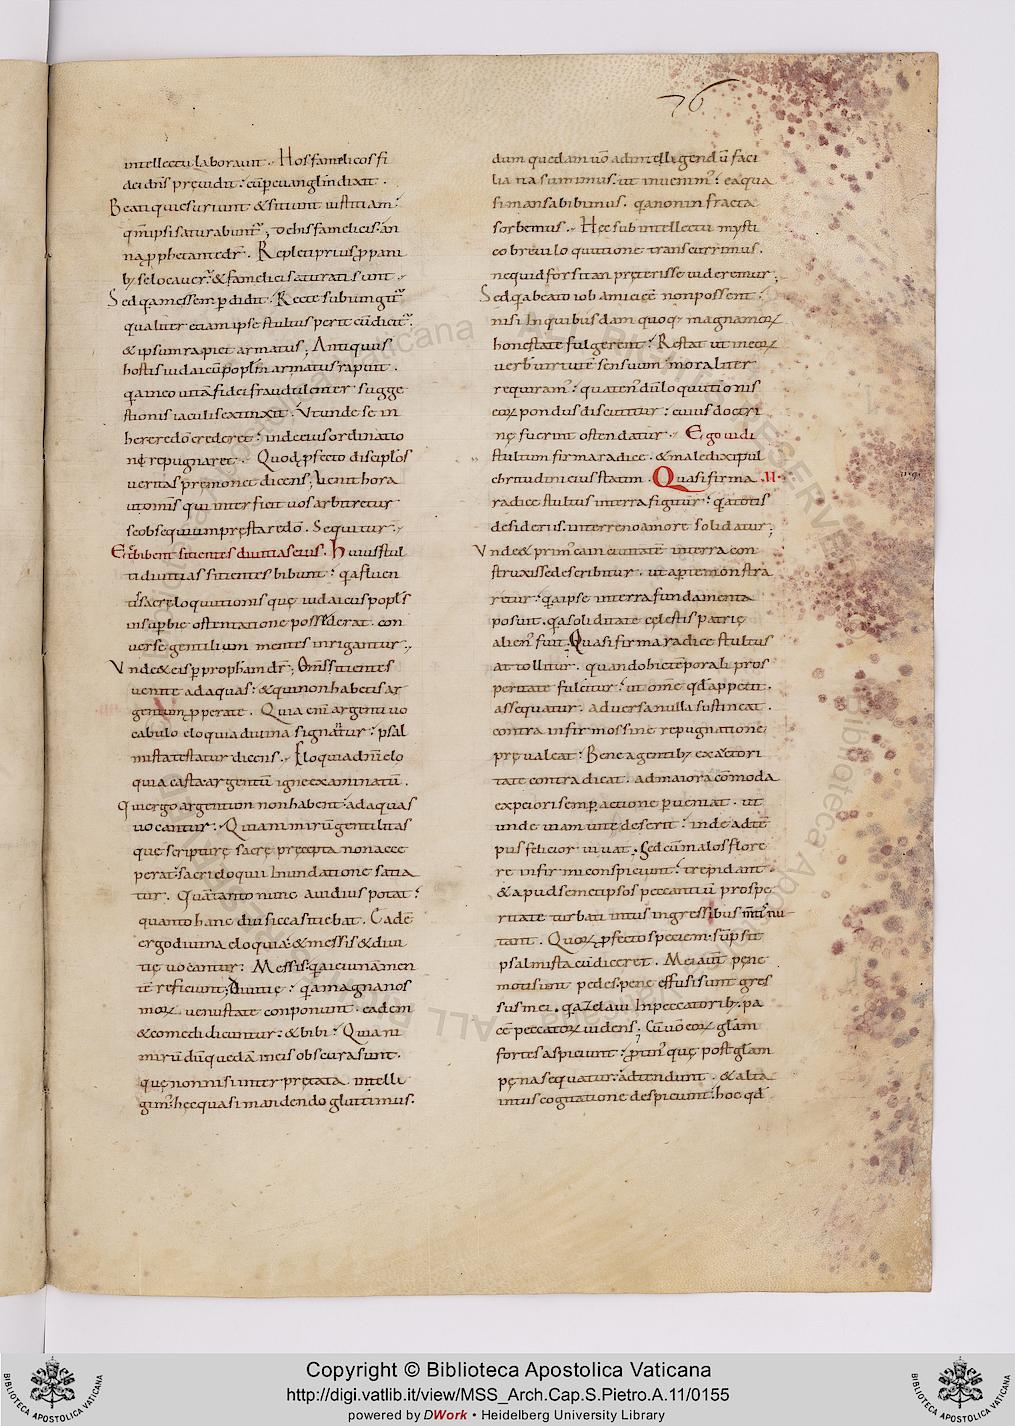 76
intellectu laborauit. Hos famelicos fi
dei dn̄s p̄ uidit: cū p euanglm̄ dixit.
Beati qui esuriunt & sitiunt iustitiam:
qm̄ ipsi saturabunt̄; De his famelicis an
na ꝓphetante dr̄. Repleti prius ꝓ pani
bꝫ se locauer̄: & famelici saturati sunt.
Sed qa messem ꝑdidit. Recte subiungit̄
qualiter etiam ipse stultus perit cū dicit̄:
& ipsum rapiet armatus; Antiquus
hostis iudaicū poplm̄ armatus rapuit.
qa in eo uitā fidei fraudulenter sugge
stionis iaculis extinxit: Ut unde se in
herere dō crederet: inde eius ordinatio
ni repugnaret. Quod ꝓfecto discip̄los
ueritas premonet dicens, Uenit hora
ut omīs qui interficit uos arbitretur
se obsequium prestare dō. Sequitur
Et bibent sitientes diuitias eius. Huius stul
ti diuitias sitientes bibunt: qa fluen
tīs sacre loquutionis que iudaicus popl̄s
in superbie ostentatione possederat. con
uerse gentilium mentes inrigantur.
Unde & eis ꝑ prophām dr̄; Om̄s sitientes
uenite ad aquas: & qui non habetis ar
gentum ꝓperate. Quia enī argenti uo
cabulo eloquia diuina signant̄ur: psal
mista testatur dicens. Eloquia dnī elo
quia casta argentū igne examinatū.
Qui ergo argentum non habent: ad aquas
uocantur: Quia nimirū gentilitas
que scripture sacre precepta non acce
perat: sacri eloquii inundatione satia
tur. Quā tanto nunc auidius potat:
quanto hanc diu sicca sitiebat. Eadē
ergo diuina eloquia: & messis & diui
tie uocantur: Messis. qa ieiunā men
tē reficiunt; Diuitie: qa magna nos
morꝝ uenustate conponunt. eadem
& comedi dicuntur: & bibi: Quia ni
mirū dū quedā in eis obscura sunt.
que non nisi interpretata intelli
gim̄: hec quasi mandendo gluttimus.
dum quedam uō ad intelligendū faci
lia ita sumimus. ut inuenim̄: ea qua
si mansa bibimus. qa non infracta
sorbemus. Hec sub intellectu mysti
co breui loquutione transcurrimus.
ne quid forsitan preterisse uideremur;
Sed qa beato iob amici eē non possent:
nisi in quibusdam quoq; magna morꝝ
honestate fulgerent: Restat ut in eorꝝ
uerb̄ uirtutē sensuum moraliter
requiram̄: quaten̄ dū loquutionis
eorꝝ pondus discutitur: cuius doctri
ne fuerint ostendatur. Ego uidi
stultum firma radice. & maledixi pul
chritudini eius statim. Quasi firma .II.
radice stultus in terra figitur: qa totis
desideriis. in terreno amore solidatur;
Unde & prim̄ cain ciuitatē in terra con
struxisse describitur. ut aꝑte monstra
retur: qa ipse in terra fundamenta
posuit. qa soliditate celestis patrie
alien̄ fuit. Quasi firma radice stultus
attollitur. quando hic temporali pros
peritate fulcitur: ut omē qd̄ appetit.
assequatur. aduersa nulla sustineat.
contra infirmos sine repugnatione
preualeat: Bene agentibꝫ ex auctori
tate contradicat. ad maiora cōmoda
ex peiori semp̄ actione ꝑueniat. ut
unde uiam uite deserit: inde ad tē
pus felicior uiuat; Sed cū malos flore
re infirmi conspiciunt: trepidant.
& apud semetipsos peccantiū prospe
ritate turbati intus in gressibus mentis nu
tant. Quorꝝ ꝓfecto speciem sūpsit
psalmista cū diceret. Mei autī pene
moti sunt pedes. pene effusi sunt gres
sus mei. qa zelaui in peccatoribꝫ. pa
cē peccatorꝝ uidens; Cū uō eorꝝ glām
fortes aspiciunt: ꝓtin̄ que post glām
pena sequatur. adtendunt. & alta
intus cogitatione despiciunt: hoc qd̄
Copyright © Biblioteca Apostolica Vaticana
http://digi.vatlib.it/view/MSS_Arch.Cap.S.Pietro.A.11/0155
powered by DWork • Heidelberg University Library